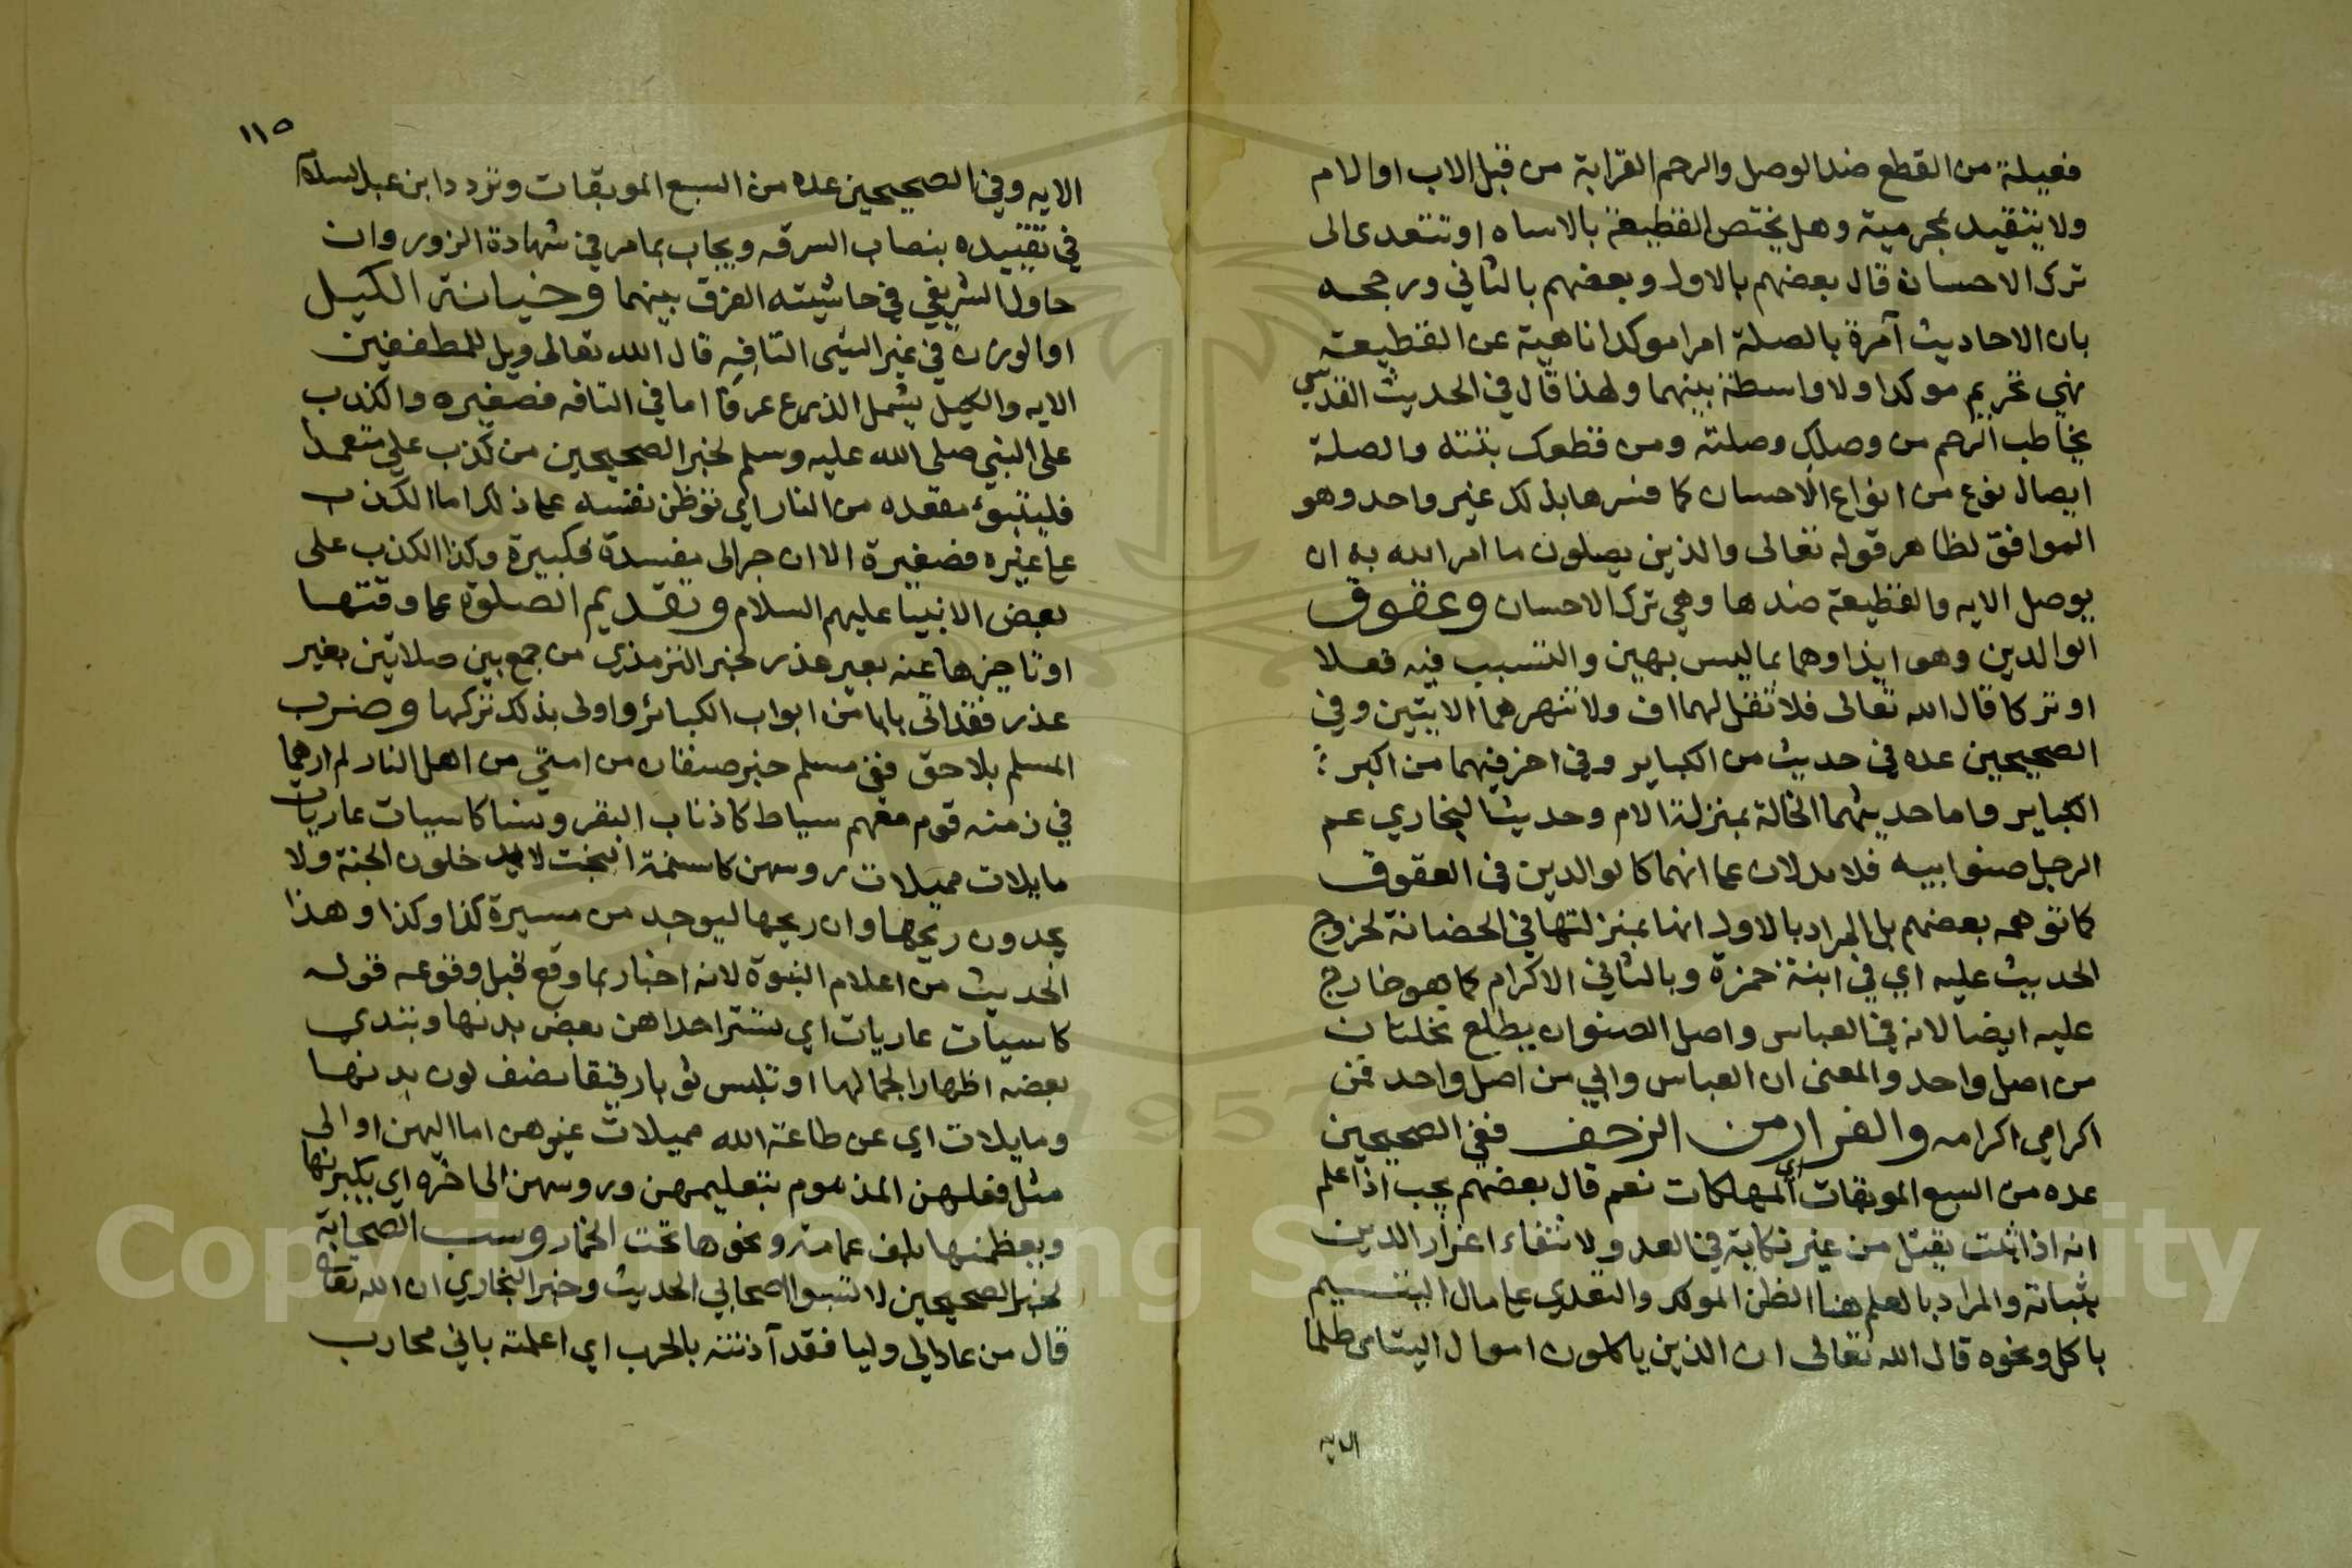 فعيلة من القطع ضد الوصل والرحم القرابة من قبل الاب او الام
ولا يتقيد بمحرمية وهل يختص القطيعة بالاساه او تتعدى الى
ترك الاحسان قال بعضهم بالاول وبعضهم بالثاني ورجحه
بان الاحاديث آمرة بالصلة امرا موكدا ناهية عن القطيعة
نهي تحريم موكدا ولا واسطة بينهما ولهذا قال في الحديث القدسي
يخاطب الرحم من وصلك وصلته ومن قطعك بتته والصلة
ايصال نوع من انواع الاحسان كما فسرها بذلك غير واحد وهو
الموافق لظاهر قوله تعالى والذين يصلون ما امر الله به ان
يوصل الايه والقطيعة ضدها وهي ترك الاحسان وعقوق
الوالدين وهو ايذاوهما بما ليس بهين والتسبب فيه فعلا
او تركا قال الله تعالى فلا تقل لهما اف ولا تنهرهما الايتين وفي
الصحيحين عده في حديث من الكباير وفي اخر فيهما من اكبر
الكباير واما حديثهما الخالة بمنزلة الام وحديث البخاري عم
الرجل صنو ابيه فلا يدلان على انهما كالوالدين في العقوق
كما توهمه بعضهم بل المراد بالاول انها بمنزلتها في الحضانة لخروج
الحديث عليه اي في ابنة حمزة وبالثاني الاكرام كما هو خارج
عليه ايضا لانه في العباس واصل الصنوان يطلع نخلتان
من اصل واحد والمعنى ان العباس وابي من اصل واحد فمن
اكرامي اكرامه والفرار من الزحف ففي الصحيحين
عده من السبع الموبقات اي المهلكات نعم قال بعضهم يجب اذا علم
انه اذا ثبت يقتل من غير نكاية في العدو لانتفاء اعزاز الدين
بثباته والمراد بالعلم هنا الظن الموكد والتعدي على مال اليتيم
باكل ونحوه قال الله تعالى ان الذين ياكلون اموال اليتامى ظلما
الايه
١١٥
الايه وفي الصحيحين عده من السبع الموبقات وتردد ابن عبد السلام
في تقييده بنصاب السرقه ويجاب بما مر في شهادة الزور وان
حاول الشريفي في حاشيته الفرق بينهما وخيانة الكيل
او الوزن في غير الشي التافه قال الله تعالى ويل للمطففين
الايه والكيل يشمل الذرع عرفا اما في التافه فصغيره والكذب
على النبي صلى الله عليه وسلم لخبر الصحيحين من كذب علي متعمدا
فليتبوء مقعده من النار اي توطن نفسه على ذلك اما الكذب
على غيره فصغيرة الا ان جر الى مفسدة فكبيرة وكذا الكذب على
بعض الانبيا عليهم السلام وتقديم الصلوة على وقتها
او تاخيرها عنه بغير عذر لخبر الترمذي من جمع بين صلاتين بغير
عذر فقد اتى بابا من ابواب الكبائر واولى بذلك تركها وضرب
المسلم بلا حق ففي مسلم خبر صنفان من امتي من اهل النار لم ارهما
في زمنه قوم معهم سياط كاذناب البقر ونسا كاسيات عاريات
مايلات مميلات روسهن كاسنمة البخت لا يدخلون الجنة ولا
يجدون ريحها وان ريحها ليوجد من مسيرة كذا وكذا وهذا
الحديث من اعلام النبوة لانه اخبار بما وقع قبل وقوعه قوله
كاسيات عاريات اي تستر احداهن بعض بدنها وتبدي
بعضه اظهارا لجمالها او تلبس ثوبا رقيقا يصف لون بدنها
ومايلات اي عن طاعة الله مميلات غيرهن اما اليهن او الى
مثل فعلهن المذموم بتعليمهن وروسهن الى اخره اي يكبرنها
ويعظمنها بلف عمامة ونحوها تحت الخمار وسب الصحابة
لخبر الصحيحين لا تسبوا اصحابي الحديث وخبر البخاري ان الله تعالى
قال من عادى لي وليا فقد آذنته بالحرب اي اعلمته باني محارب